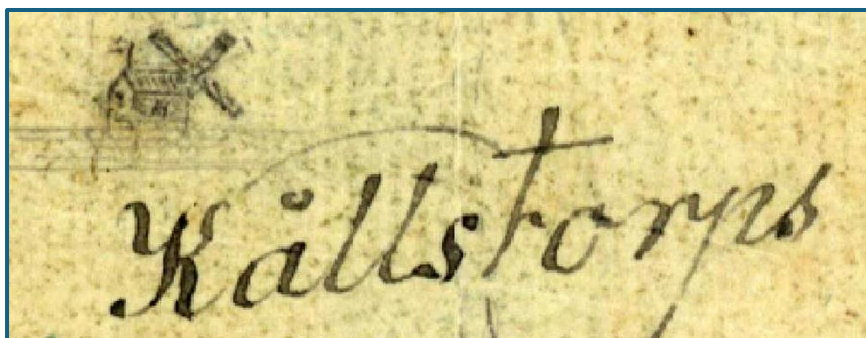 Kållstorps